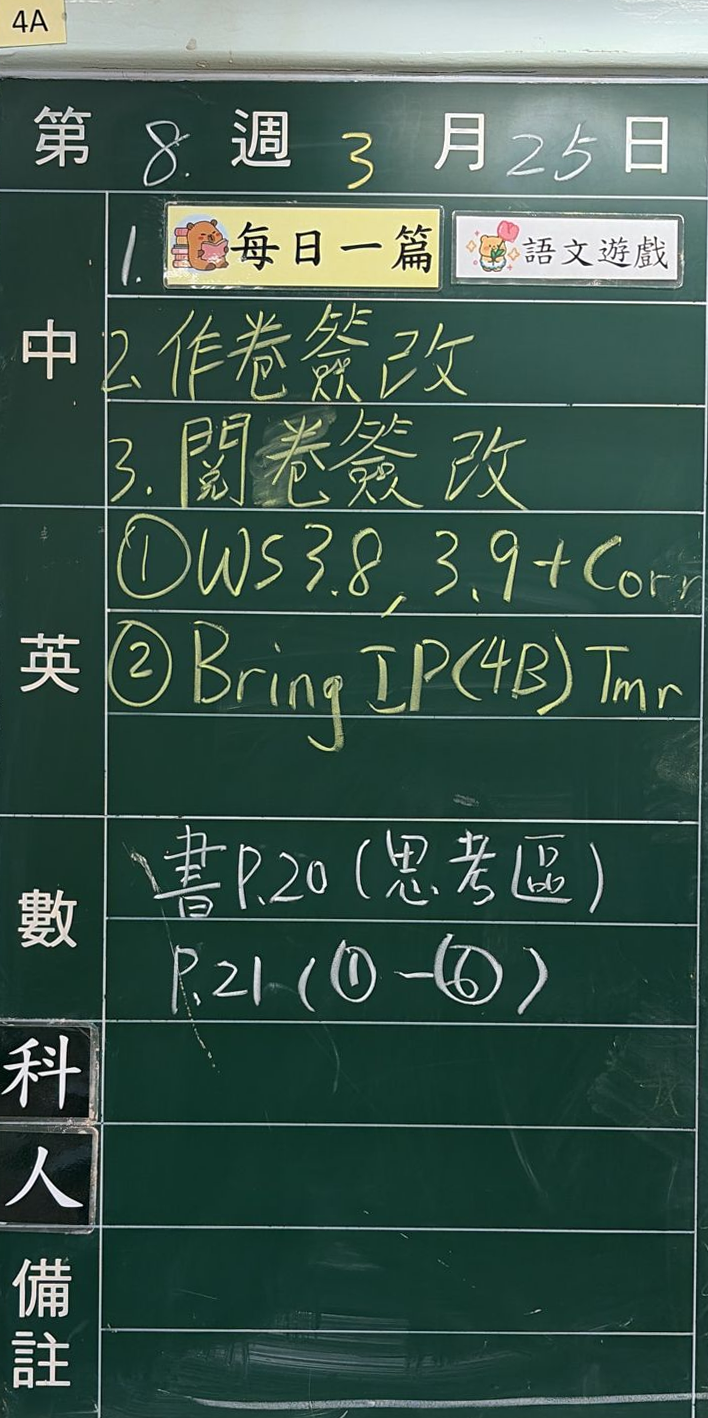 4A
第 8. 週 3 月 25 日
中
1. 每日一篇 語文遊戲
2. 作卷簽改
3. 閱卷簽改
英
① WS 3.8, 3.9 + Corr
② Bring IP(4B) Tmr
數
書P.20 (思考區)
P.21 (①-⑥)
科
人
備註